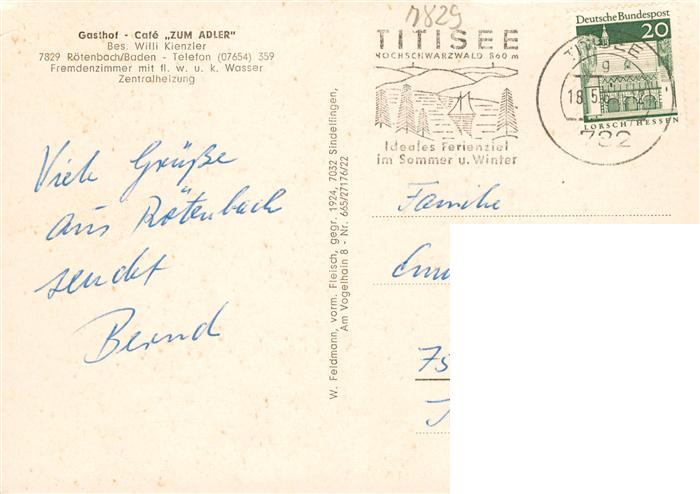 Gasthof - Café „ZUM ADLER"
Bes. Willi Kienzler
7829 Rötenbach/Baden - Telefon (07654) 359
Fremdenzimmer mit fl. w. u. k. Wasser
Zentralheizung
Viele Grüße
aus Rötenbach
sendet
Bernd
W. Feldmann, vorm. Fleisch, gegr. 1924, 7032 Sindelfingen,
Am Vogelhain 8 - Nr. 665/27176/22
7829
TITISEE
HOCHSCHWARZWALD 860 m
Ideales Ferienziel
im Sommer u. Winter
TITISEE
g
18.5.
782
Deutsche Bundespost
20
LORSCH/HESSEN
Familie
75